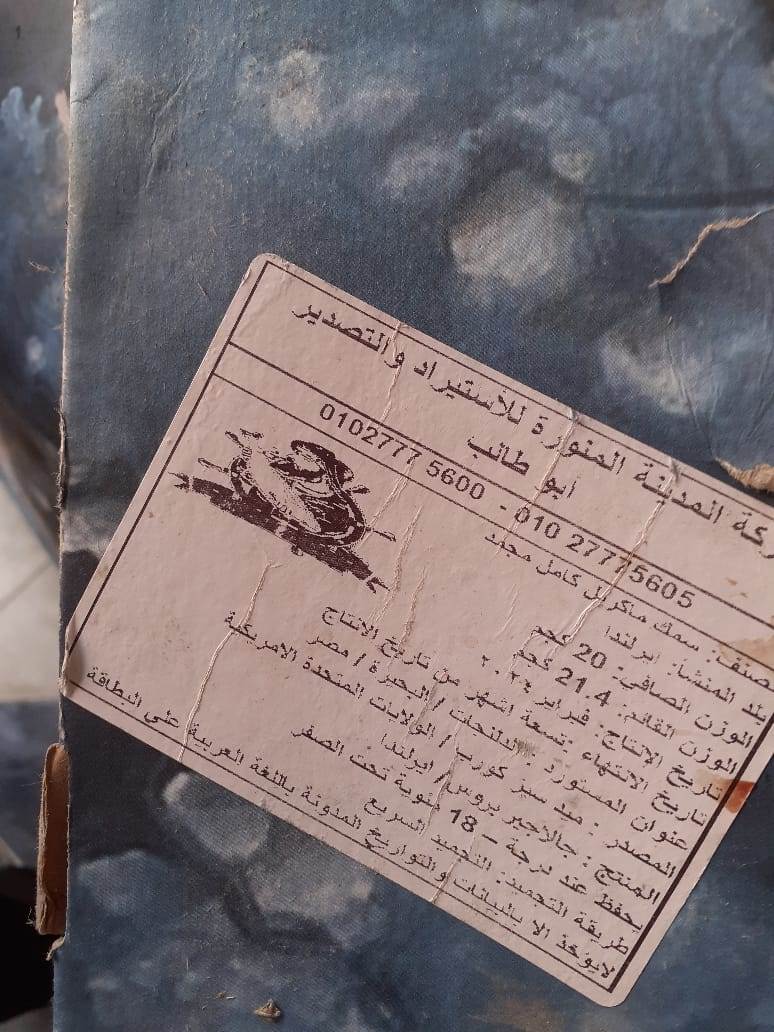 كة المدينة المنورة للأستيراد والتصدير
ابو طالب
0102777 5600 - 010 27775605
صنف: سمك ماكريل كامل مجمد
بلد المنشأ: ايرلندا
الوزن الصافي: 20 كجم
الوزن القائم: 21.4 كجم
تاريخ الانتاج: فبراير ٢٠٢٤
تاريخ الانتهاء: تسعة اشهر من تاريخ الانتاج
عنوان المستورد: البحيرة / مصر
المصدر: ميد سيز كورب / الولايات المتحدة الامريكية
المنتج: جالاجير بروس / ايرلندا
يحفظ عند درجة – 18 مئوية تحت الصفر
طريقة التجميد: التجميد السريع
لايؤخذ الا بالبيانات والتواريخ المدونة باللغة العربية على البطاقة